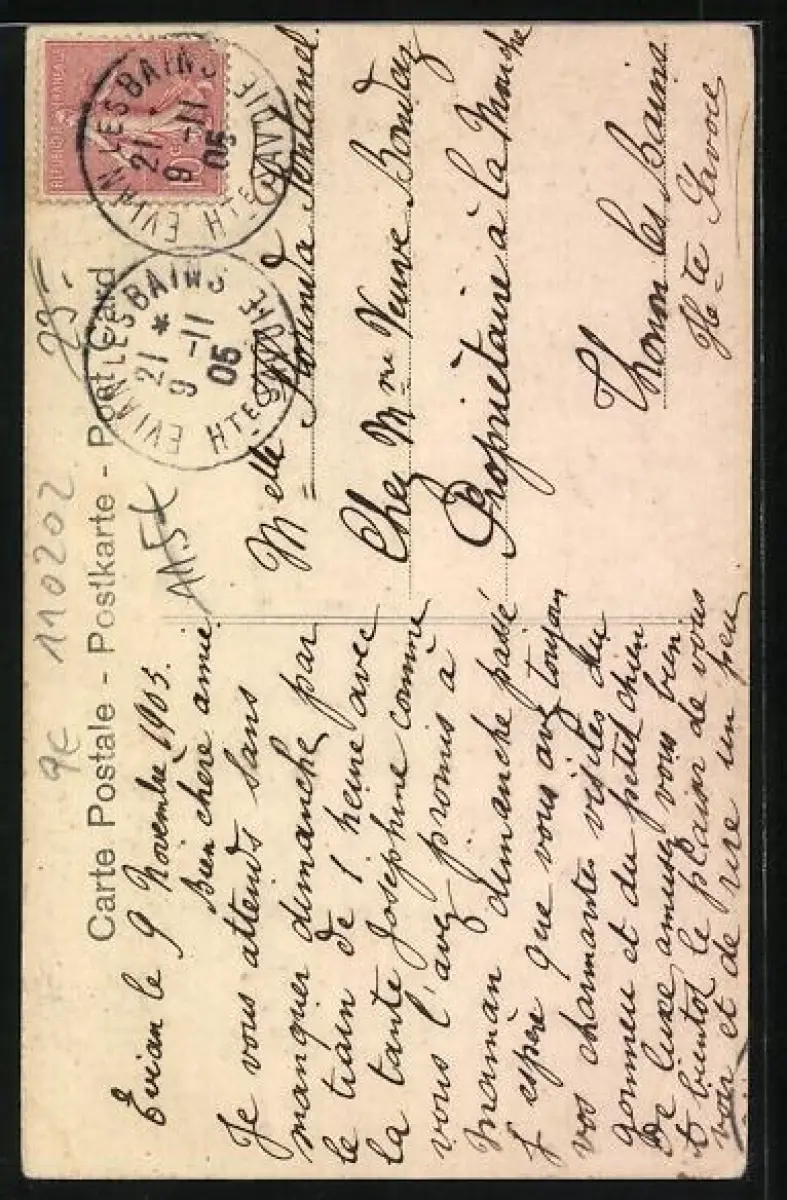 Carte Postale - Postkarte - Post Card
110202
9€
REPUBLIQUE FRANCAISE
10c
EVIAN LES BAINS
21 *
9 -11
05
HTE SAVOIE
EVIAN LES BAINS
21 *
9 -11
05
HTE SAVOIE
Evian le 9 Novembre 1905.
Bien chère amie
Je vous attends sans
manquer dimanche, par
le train de 1 heure avec
la tante Joséphine comme
vous l'avez promis à
maman dimanche passé
J'espère que vous avez toujours
vos charmantes visites du
et du petit chien
De luxe amusez vous bien
à bientôt le plaisir de vous
voir et de rire un peu
Melle
Chez Mme Veuve
Propriétaire à la
Thonon les Bains
Hte Savoie